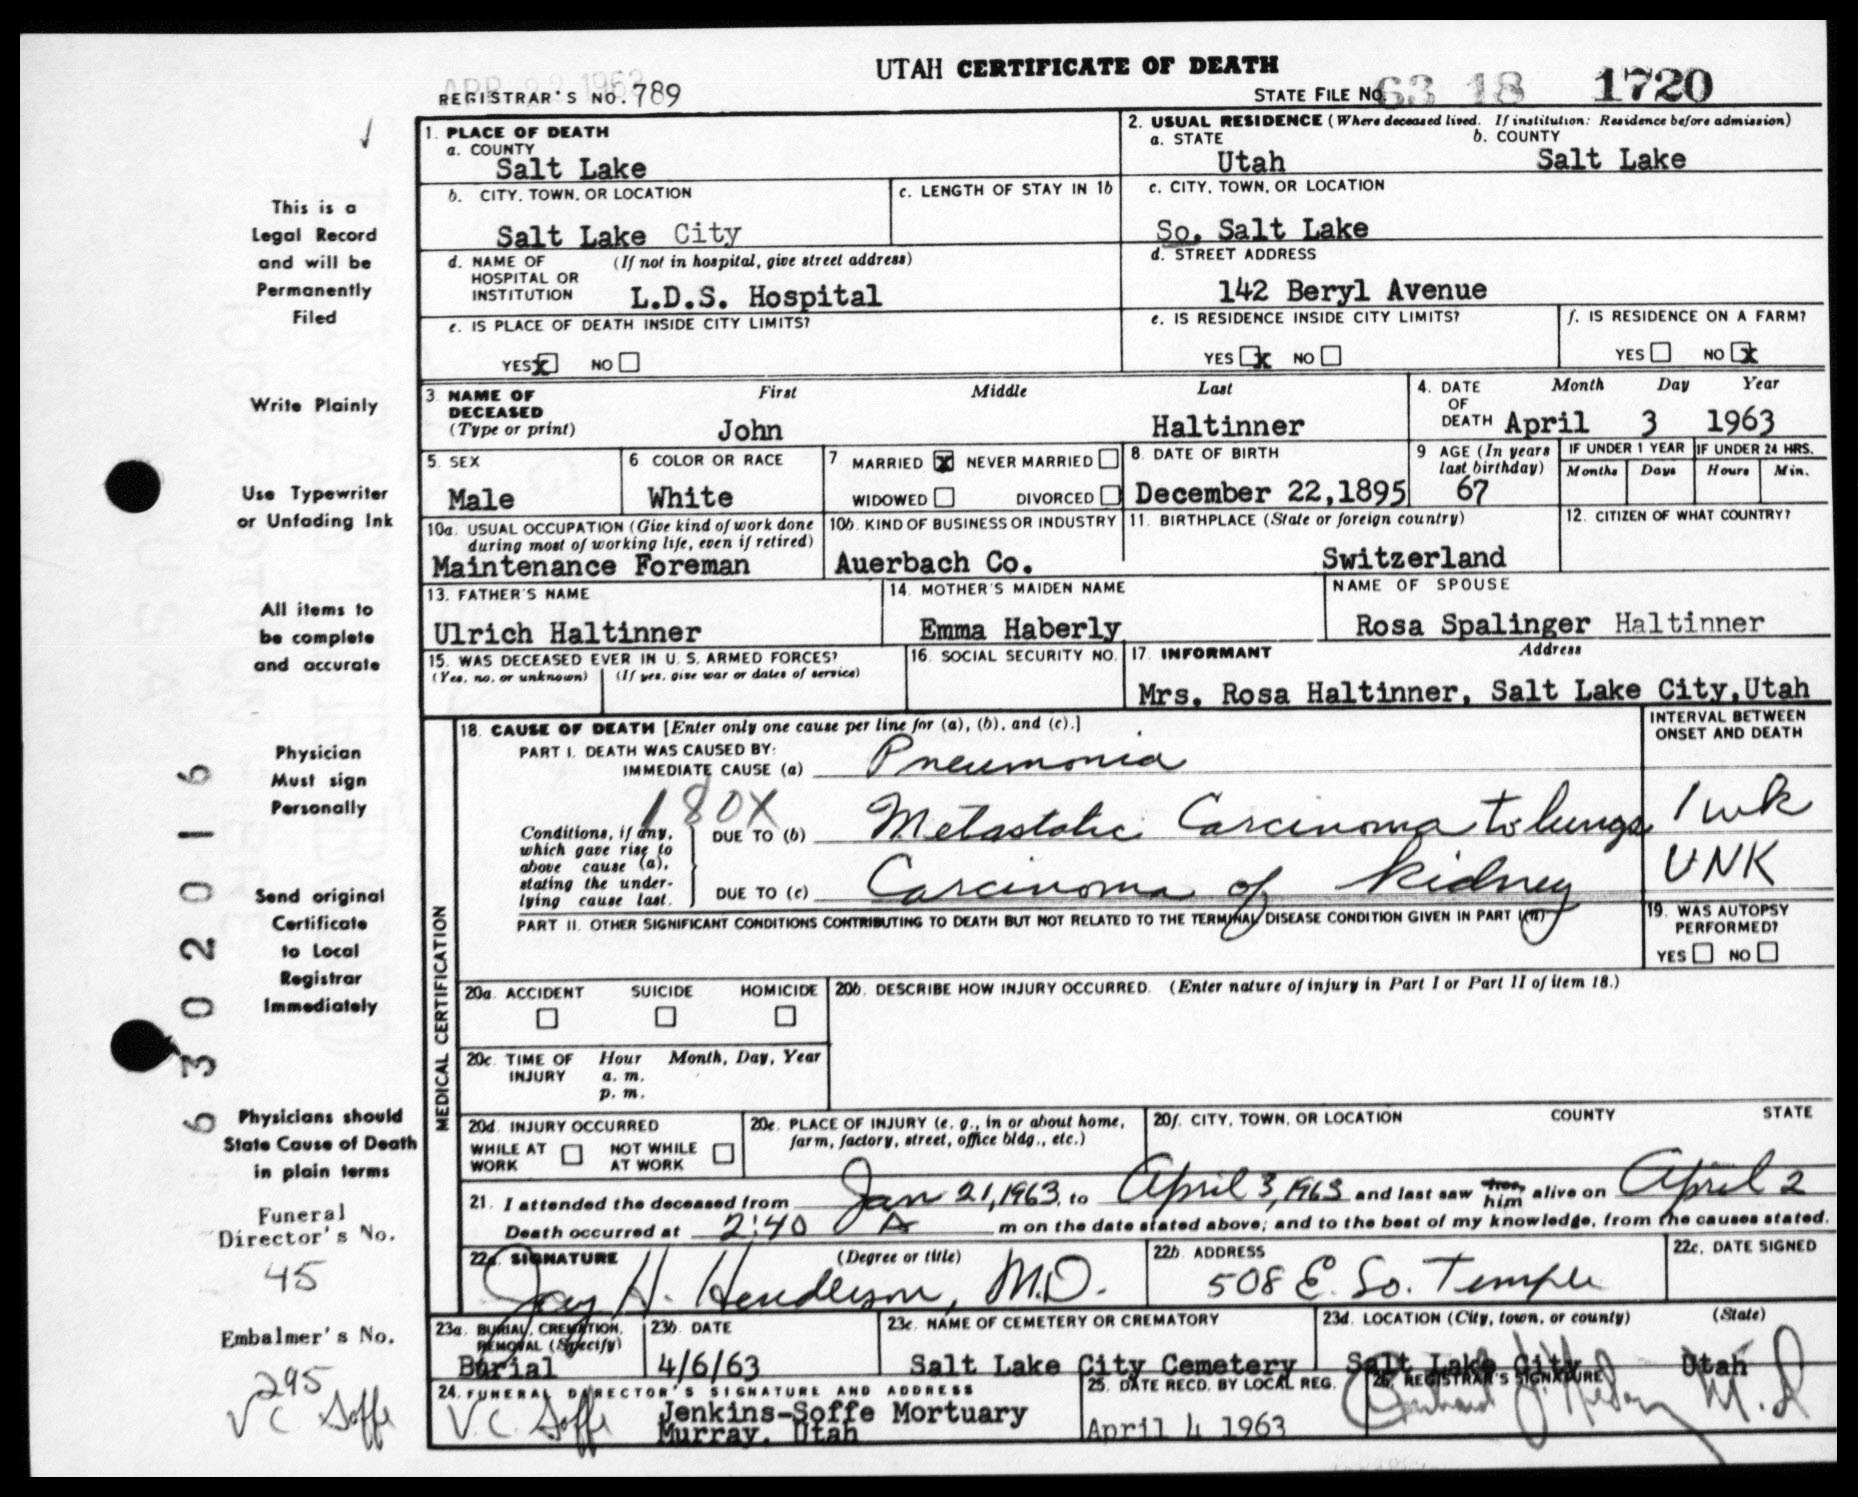 UTAH CERTIFICATE OF DEATH
APR 22 1963
REGISTRAR'S NO. 789
STATE FILE NO. 63 18 1720
This is a
Legal Record
and will be
Permanently
Filed
Write Plainly
Use Typewriter
or Unfading Ink
All items to
be complete
and accurate
Physician
Must sign
Personally
Send original
Certificate
to Local
Registrar
Immediately
Physicians should
State Cause of Death
in plain terms
Funeral
Director's No.
45
Embalmer's No.
295
V C Soffe
6302016
1. PLACE OF DEATH
a. COUNTY
Salt Lake
b. CITY, TOWN, OR LOCATION
Salt Lake City
c. LENGTH OF STAY IN 1b
d. NAME OF HOSPITAL OR INSTITUTION (If not in hospital, give street address)
L.D.S. Hospital
e. IS PLACE OF DEATH INSIDE CITY LIMITS?
YES X NO
2. USUAL RESIDENCE (Where deceased lived. If institution: Residence before admission)
a. STATE
Utah
b. COUNTY
Salt Lake
c. CITY, TOWN, OR LOCATION
So. Salt Lake
d. STREET ADDRESS
142 Beryl Avenue
e. IS RESIDENCE INSIDE CITY LIMITS?
YES X NO
f. IS RESIDENCE ON A FARM?
YES NO X
3. NAME OF DECEASED (Type or print)
First Middle Last
John Haltinner
4. DATE OF DEATH
Month Day Year
April 3 1963
5. SEX
Male
6. COLOR OR RACE
White
7. MARRIED X NEVER MARRIED
WIDOWED DIVORCED
8. DATE OF BIRTH
December 22,1895
9 AGE (In years last birthday)
67
IF UNDER 1 YEAR
Months Days
IF UNDER 24 HRS.
Hours Min.
10a. USUAL OCCUPATION (Give kind of work done during most of working life, even if retired)
Maintenance Foreman
10b. KIND OF BUSINESS OR INDUSTRY
Auerbach Co.
11. BIRTHPLACE (State or foreign country)
Switzerland
12. CITIZEN OF WHAT COUNTRY?
13. FATHER'S NAME
Ulrich Haltinner
14. MOTHER'S MAIDEN NAME
Emma Haberly
NAME OF SPOUSE
Rosa Spalinger Haltinner
15. WAS DECEASED EVER IN U. S. ARMED FORCES?
(Yes, no, or unknown) (If yes, give war or dates of service)
16. SOCIAL SECURITY NO.
17. INFORMANT Address
Mrs. Rosa Haltinner, Salt Lake City,Utah
MEDICAL CERTIFICATION
18. CAUSE OF DEATH [Enter only one cause per line for (a), (b), and (c).]
PART I. DEATH WAS CAUSED BY:
IMMEDIATE CAUSE (a) Pneumonia
180X
Conditions, if any, which gave rise to above cause (a), stating the underlying cause last.
DUE TO (b) Metastatic Carcinoma to lungs
DUE TO (c) Carcinoma of kidney
INTERVAL BETWEEN
ONSET AND DEATH
1 wk
UNK
PART II. OTHER SIGNIFICANT CONDITIONS CONTRIBUTING TO DEATH BUT NOT RELATED TO THE TERMINAL DISEASE CONDITION GIVEN IN PART I(a)
19. WAS AUTOPSY PERFORMED?
YES NO
20a. ACCIDENT SUICIDE HOMICIDE
20b. DESCRIBE HOW INJURY OCCURRED. (Enter nature of injury in Part I or Part II of item 18.)
20c. TIME OF INJURY Hour Month, Day, Year
a. m.
p. m.
20d. INJURY OCCURRED
WHILE AT WORK NOT WHILE AT WORK
20e. PLACE OF INJURY (e. g., in or about home, farm, factory, street, office bldg., etc.)
20f. CITY, TOWN, OR LOCATION COUNTY STATE
21. I attended the deceased from Jan 21,1963, to April 3,1963 and last saw her, him alive on April 2
Death occurred at 2:40 A m on the date stated above; and to the best of my knowledge, from the causes stated.
22a. SIGNATURE (Degree or title)
Jay H. Henderson, M.D.
22b. ADDRESS
508 E. So. Temple
22c. DATE SIGNED
23a. BURIAL, CREMATION, REMOVAL (Specify)
Burial
23b. DATE
4/6/63
23c. NAME OF CEMETERY OR CREMATORY
Salt Lake City Cemetery
23d. LOCATION (City, town, or county) (State)
Salt Lake City Utah
24. FUNERAL DIRECTOR'S SIGNATURE AND ADDRESS
V.C. Soffe Jenkins-Soffe Mortuary
Murray, Utah
25. DATE RECD. BY LOCAL REG.
April 4 1963
26. REGISTRAR'S SIGNATURE